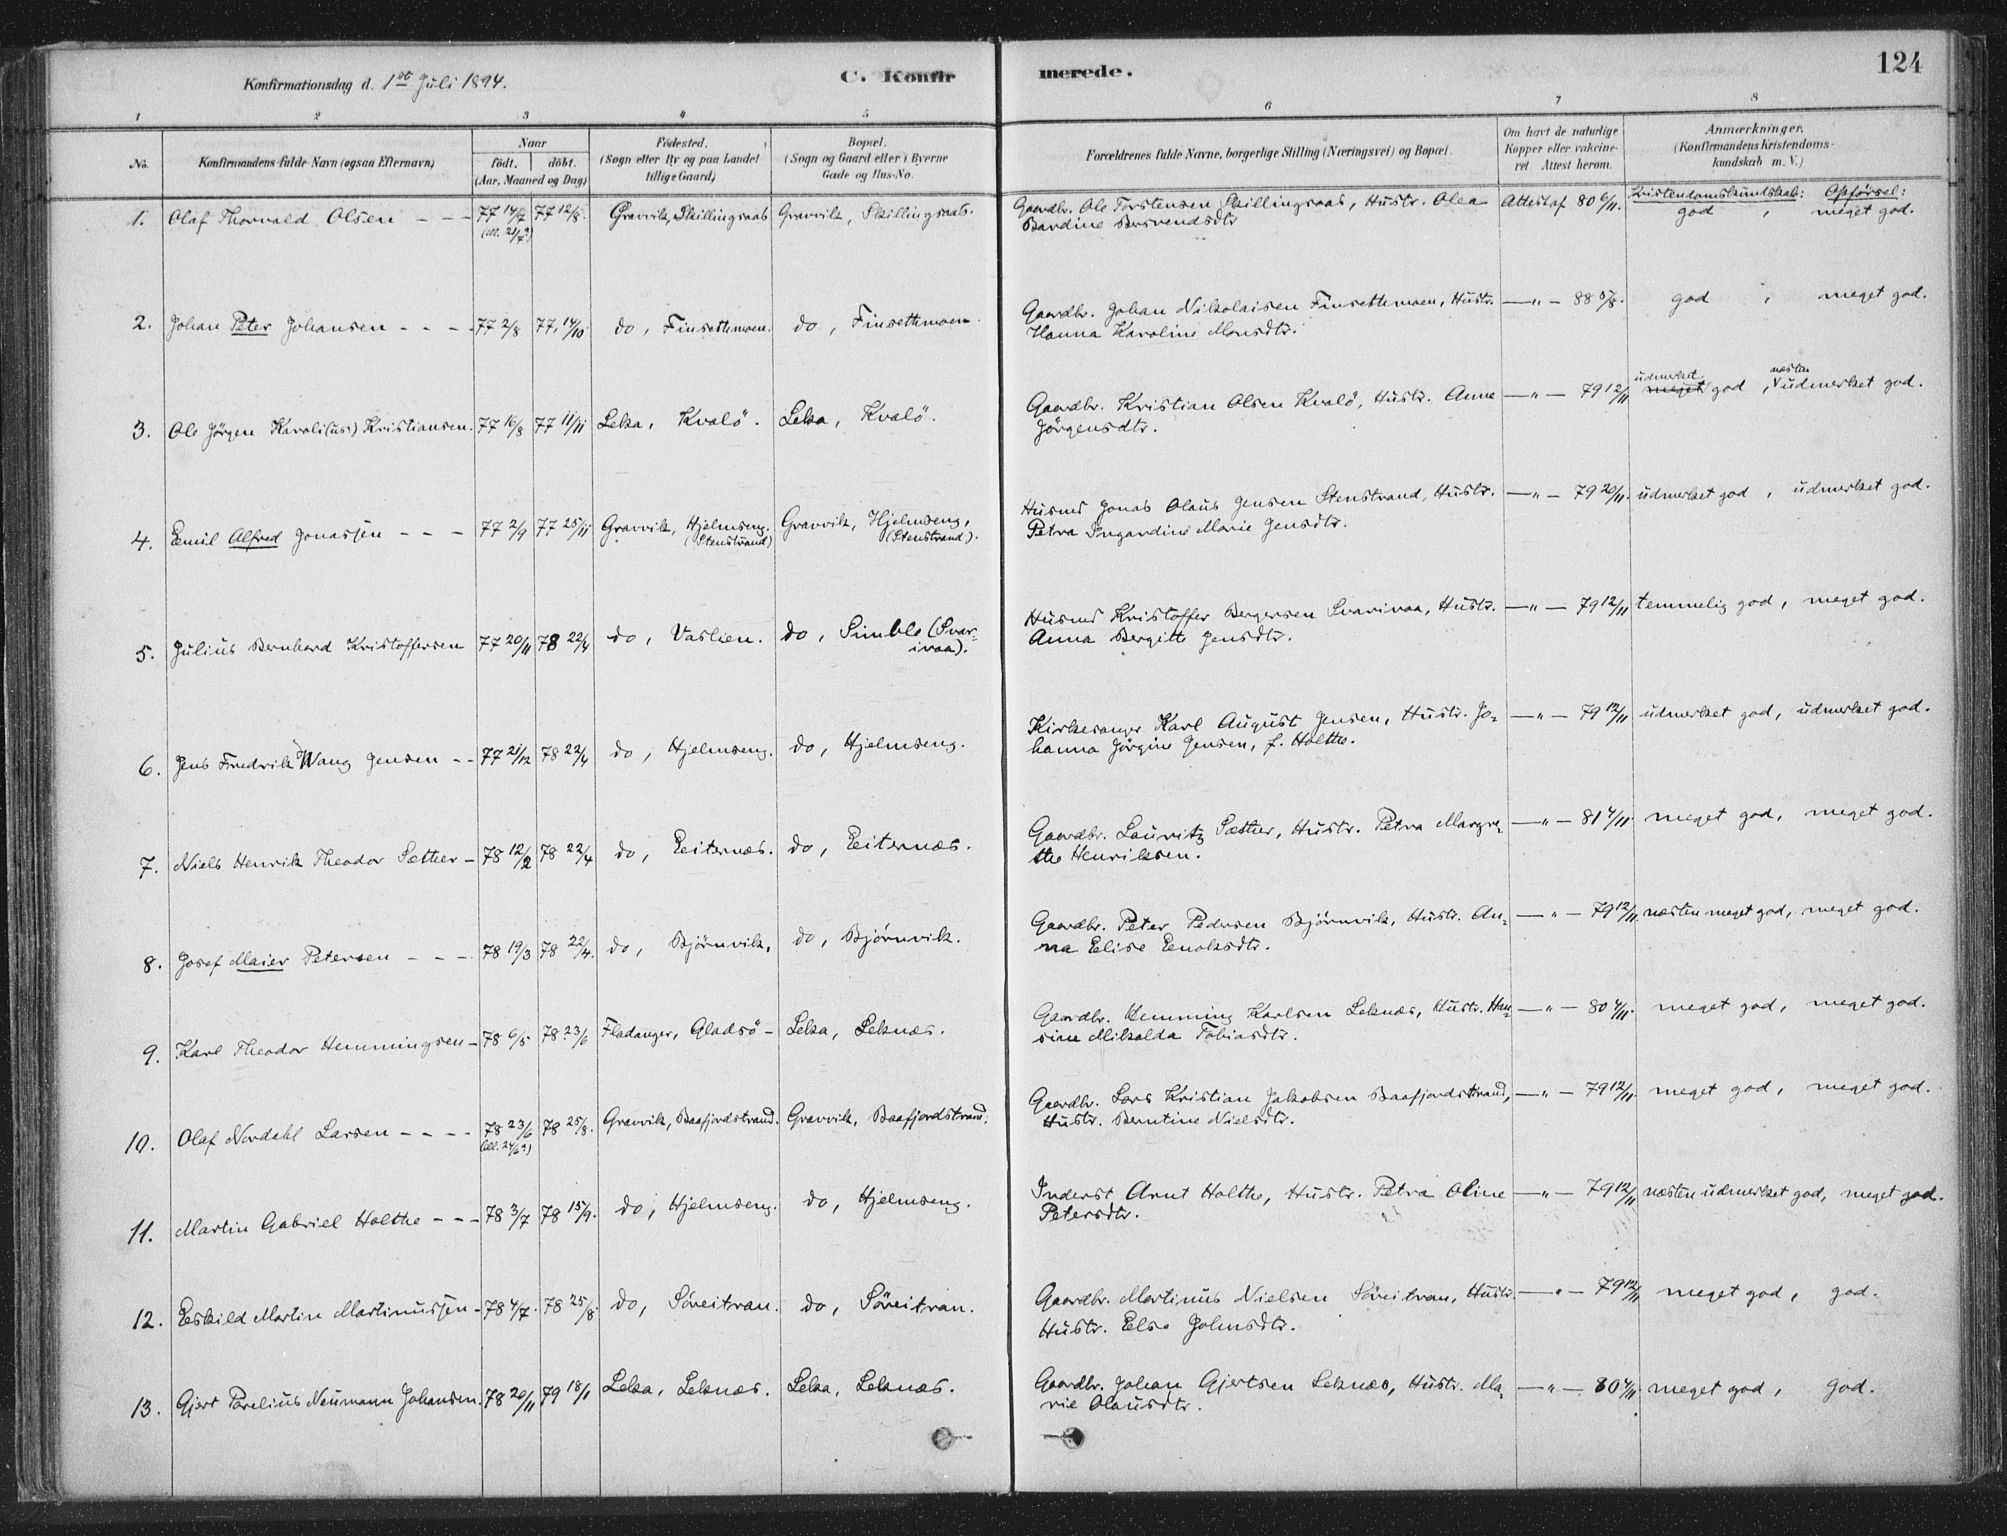 Konfirmationsdag d. 1ste Juli 1894.
C. Konfir
merede.
124
1 2 3 4 5 6 7 8
No.
Konfirmandens fulde Navn (ogsaa Efternavn)
Naar
födt. döbt.
(Aar, Maaned og Dag)
Födested.
(Sogn eller By og paa Landet
tillige Gaard)
Bopæl.
(Sogn og Gaard eller i Byerne
Gade og Hus-No.
Forældrenes fulde Navne, borgerlige Stilling (Næringsvei) og Bopæl.
Om havt de naturlige
Kopper eller vakcine-
ret Attest herom.
Anmærkninger.
(Konfirmandens Kristendoms-
kundskab m. V.)
Kristendomskundskab: Opførsel:
1. Olaf Thorvald Olsen - - - 77 14/7 77 12/8. Gravvik, Skillingsaas Gravvik, Skillingsaas.
(ell. 21/7?)
Gaardbr. Ole Torstensen Skillingsaas, Hustr. Olea Attest af 80 6/11. god , meget god.
Bardine
2. Johan Peter Johansen - - - 77 2/8 77, 14/10 do, Finsethmoen. do, Finsethmoen.
Gaardbr. Johan Nikolaisen Finsethmoen, Hustr. —"— 88 5/8. god , meget god.
Hanna Karoline Monsdtr.
3. Ole Jørgen Karoli(us) Kristiansen. 77 16/8 77 11/11 Leka, Kvalö. Leka, Kvalö.
udmerket næsten
Gaardbr. Kristian Olsen Kvalö, Hustr. Anne —"— 79 12/11 meget god , udmerket god.
Jörgensdtr.
4. Emil Alfred Jonassen - - - 77 2/9 77 25/11 Gravvik, Hjelmseng. Gravvik, Hjelmseng,
(Stenstrand) (Stenstrand).
Husmd Jonas Olaus Jensen Stenstrand, Hustr. —"— 79 20/11. udmerket god , udmerket god.
Petra Ingardine Marie Jensdtr.
5. Julius Bernhard Kristoffersen 77 20/11 78 22/4 do, Vaslien. do, Simble (Svar-
ivaa).
Husmd Kristoffer Bergersen Svarivaa, Hustr. —"— 79 12/11 temmelig god, meget god.
Anna Bergitte Jensdtr.
6. Jens Fredrik Wang Jensen - - 77 21/12 78 22/4 do, Hjelmseng. do, Hjelmseng.
Kirkesanger Karl August Jensen, Hustr. Jo- —"— 79 12/11 udmerket god, udmerket god.
hanna Jörgine Jensen, f. Holthe.
7. Niels Henrik Theodor Sæther - 78 12/2 78 22/4 do, Eiternæs. do, Eiternæs.
Gaardbr. Lauritz Sæther, Hustr. Petra Margre- —"— 81 4/11. meget god, meget god.
the Henriksen.
8. Josef Maier Petersen - - - 78 19/3 78 22/4. do, Bjørnvik. do, Bjørnvik.
Gaardbr. Peter Pedersen Bjørnvik, Hustr. An- —"— 79 12/11 næsten meget god, meget god.
na Elise Enoksdtr.
9. Karl Theodor Hemmingsen - 78 6/5 78 23/6 Fladanger, Gladsö - Leka, Leknæs.
Gaardbr. Hemming Karlsen Leknæs, Hustr. Han- —"— 80 4/11. meget god, meget god.
sine Mikalda Tobiasdtr.
10. Olaf Nordahl Larsen - - - - 78 23/6 78 25/8. Gravvik, Baafjordstrand. Gravvik, Baafjordstrand.
(ell. 24/6?)
Gaardbr. Lars Kristian Jakobsen Baafjordstrand, —"— 79 12/11 meget god, meget god.
Hustr. Berntine Nielsdtr.
11. Martin Gabriel Holthe - - - 78 3/7 78 15/9. do, Hjelmseng. do, Hjelmseng.
Inderst Arnt Holthe, Hustr. Petra Oline —"— 79 12/11 næsten udmerket god, meget god.
Petersdtr.
12. Eskild Martin Martinussen - 78 4/7. 78 25/8. do, Söreitran. do, Söreitran.
Gaardbr. Martinus Nielsen Söreitran, Hustr. —"— 79 12/11 meget god, god.
Hustr. Else Johnsdtr.
13. Gjert Parelius Neumann Johansen. 78 20/11 79 18/1 Leka, Leknæs. Leka, Leknæs.
Gaardbr. Johan Gjertsen Leknæs, Hustr. Ma- —"— 80 4/11 meget god, god.
rie Olausdtr.